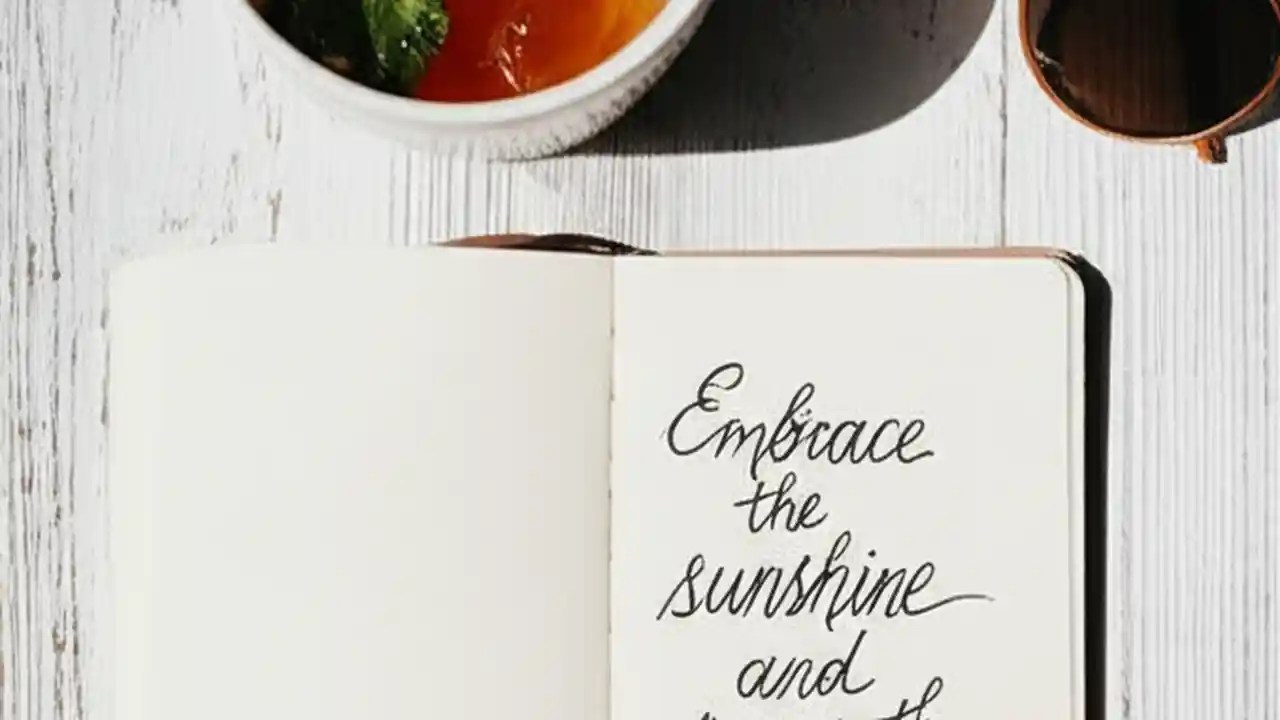 Embrace
the
sunshine
and